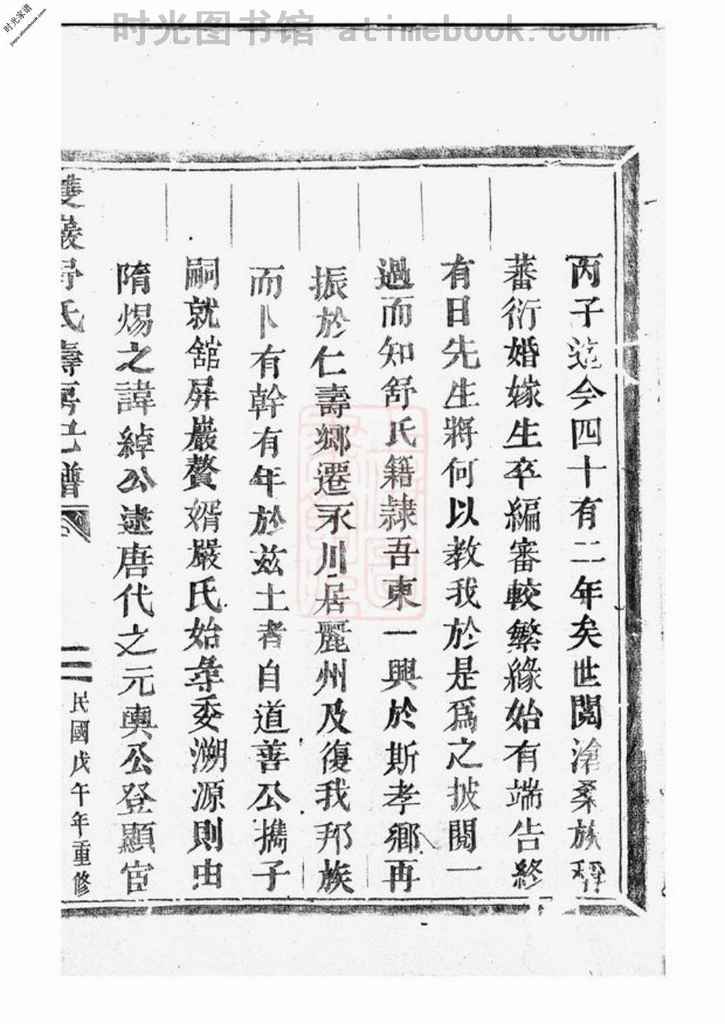 时光图书馆 atimebook.com
时光家谱
丙子迄今四十有二年矣世閱滄桑族稱
蕃衍婚嫁生卒編審較繁緣始有端告終
有日先生將何以教我於是爲之披閱一
過而知舒氏籍隸吾東一興於斯孝鄉再
振於仁壽鄉遷永川居麗州及復我邦族
而卜有幹有年於兹土者自道善公擕子
嗣就舘屏巖贅婿嚴氏始彙委溯源則由
隋煬之諱綽公逮唐代之元輿公登顯宦
雙巖舒氏壽房己譜
二
民國戊午年重修